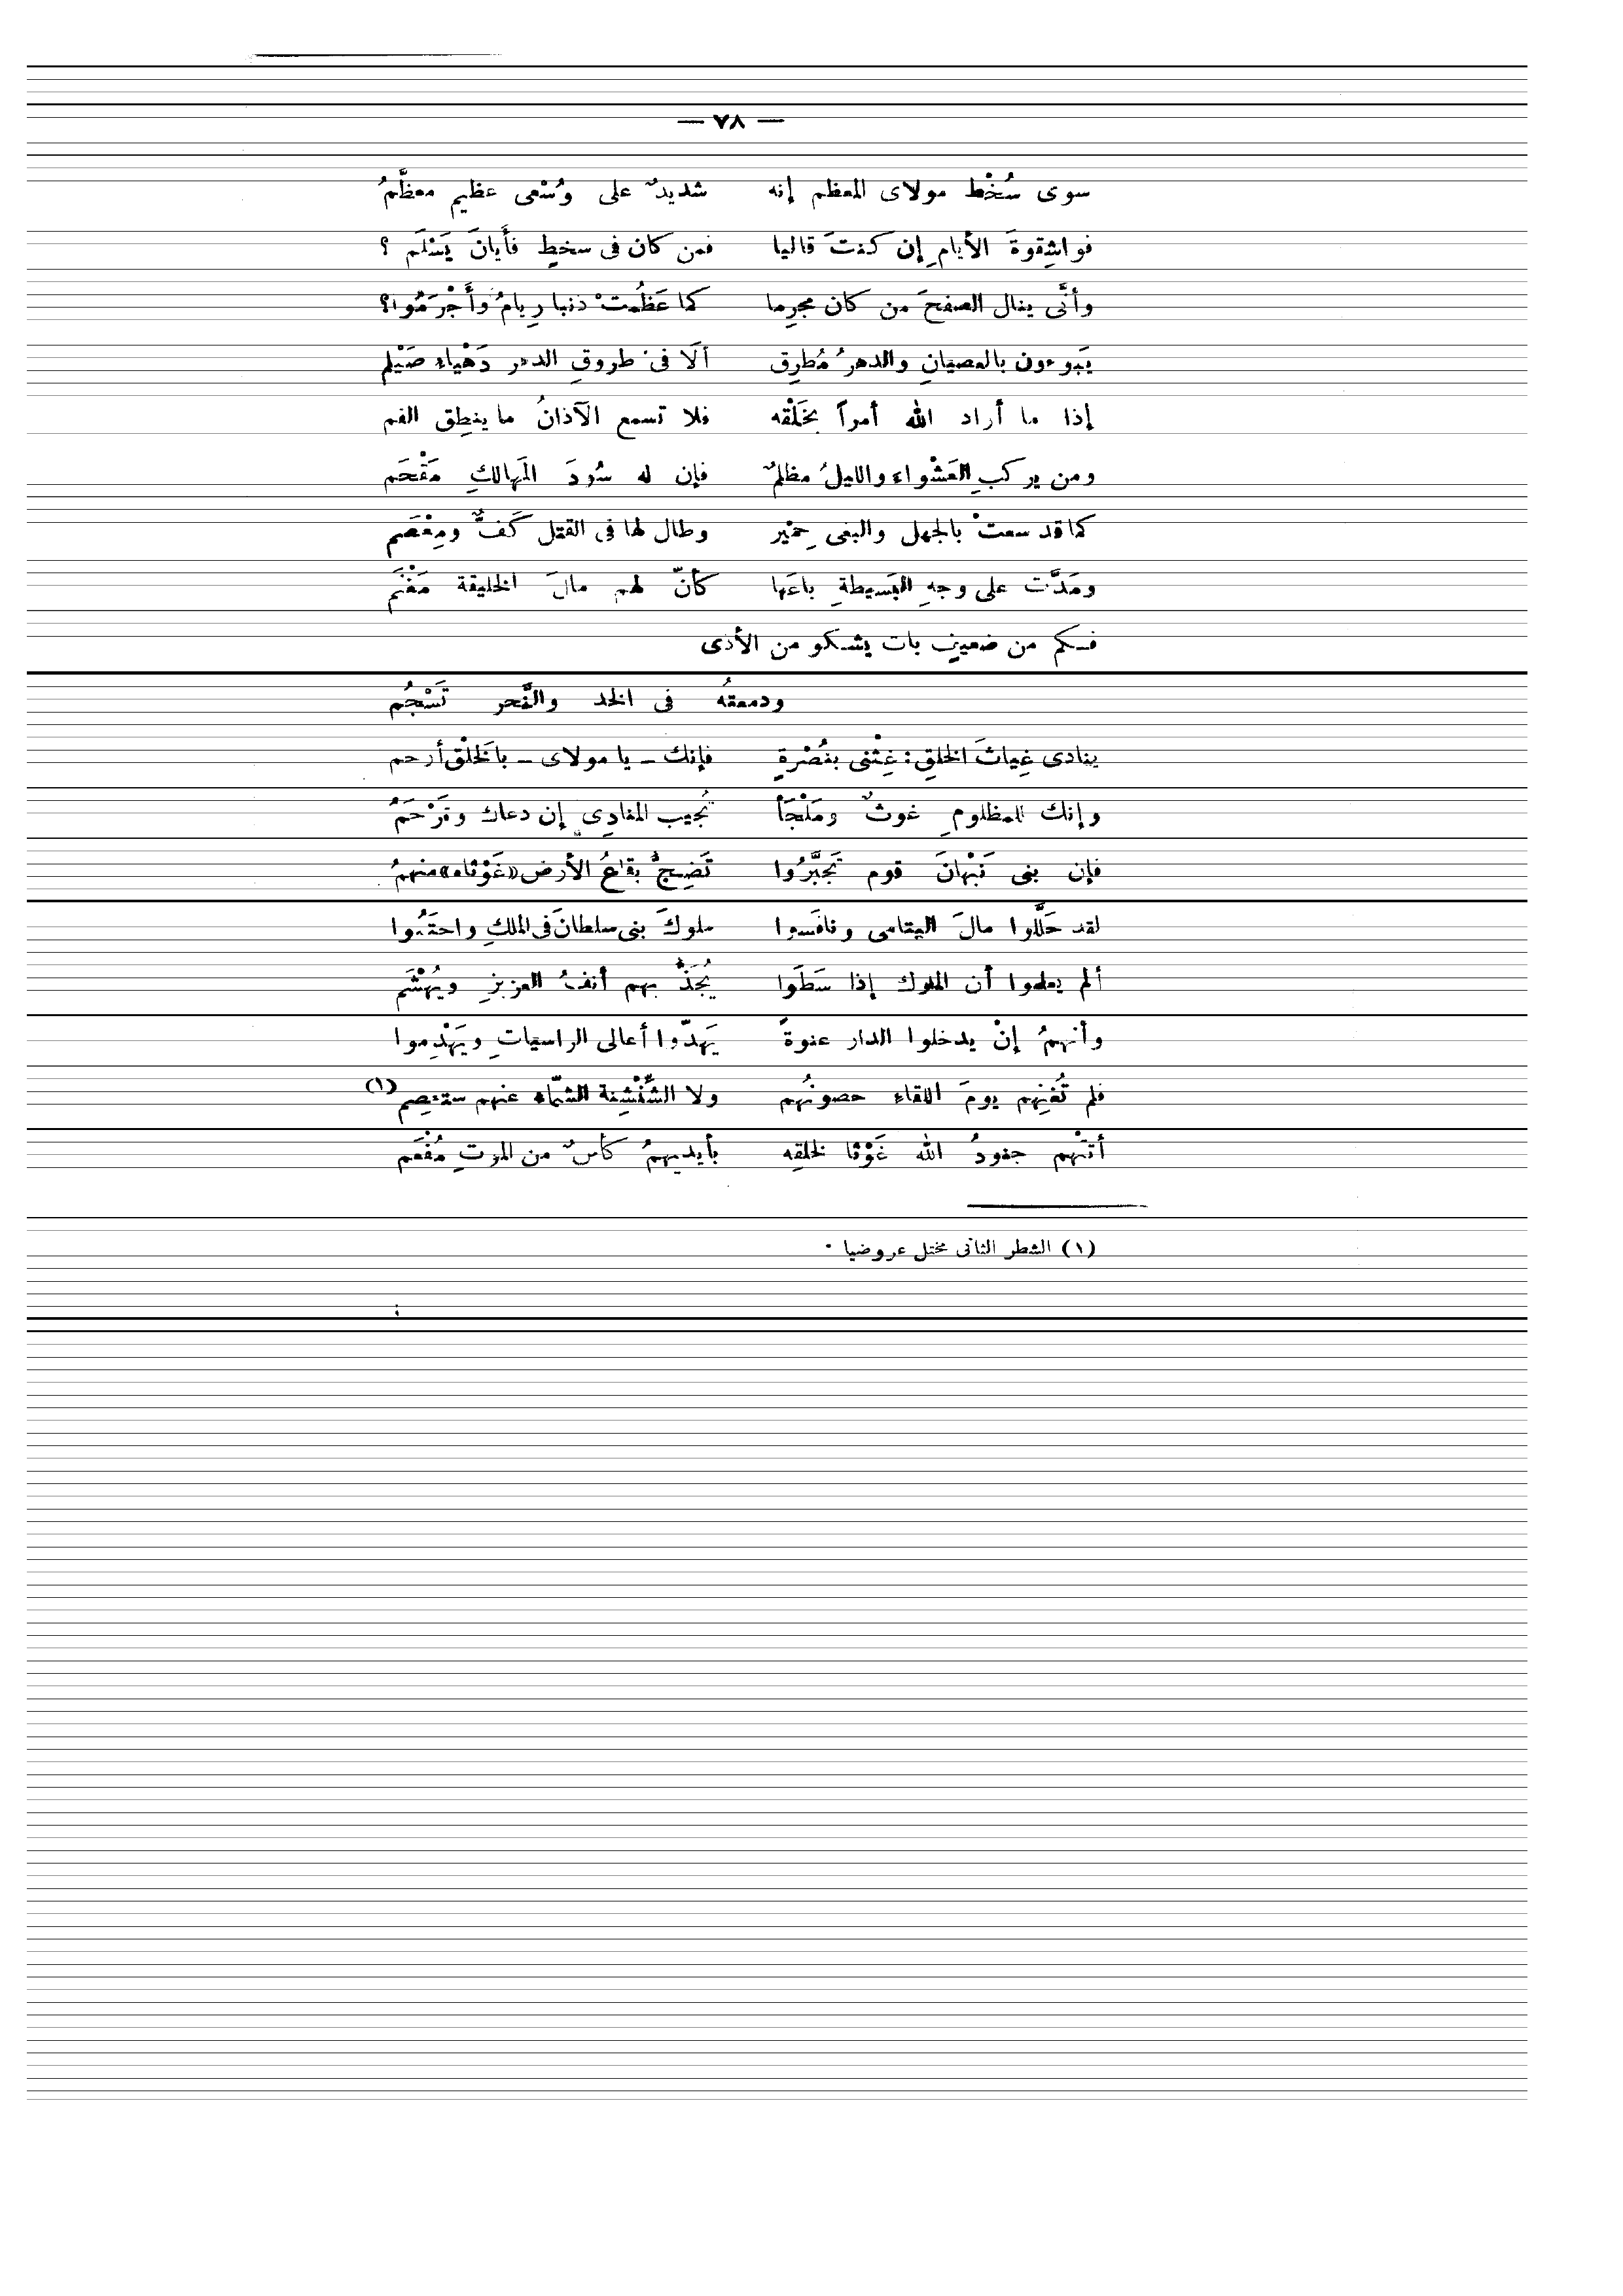 — ٧٨ —
سوى سُخْط مولاى المعظم إنه شديدٌ على وُسْعى عظيم معظَّمُ
فواشِقوةَ الأيامِ إن كنتَ قاليا فمن كان فى سخطٍ فأَيانَ يَسْلَم ؟
وأنَّى ينال الصفحَ من كان مجرِما كما عَظُمتْ ذنبا رِيامُ وأَجْرَمُوا؟
يَبوءون بالعصيانِ والدهرُ مُطرِق ألَا فى طروقِ الدهر دَهْياء صَيْلم
إذا ما أراد الله أمراً بخَلْقه فلا تسمع الآذانُ ما ينطِق الفم
ومن يركبِ العَشْواء والليلُ مظلمٌ فإن له سُودَ المَهالكِ مَقْحَم
كما قد سعتْ بالجهل والبغى حِمْير وطال لها فى القتل كَفٌّ ومِعْصَم
ومَدَّت على وجهِ البَسيطةِ باعَها كأنّ لهم مالَ الخليقة مَغْنَم
فكم من ضعيفٍ بات يشكو من الأذى
ودمعهُ فى الخد والنَّحر تَسْجُم
ينادى غِياثَ الخلقِ: غِثْنى بنُصْرةٍ فإنك – يا مولاى – بالخَلْق أرحم
وإنك للمظلومِ غوثٌ ومَلْجَأ تُجيب المنادِى إن دعاك وتَرْحَمُ
فإن بنى نَبْهانَ قوم تَجبَّرُوا تَضِجُّ بقاعُ الأرض «غَوْثاه» منهمُ
لقد حَلَّلوا مالَ اليتامى ونافَسوا ملوكَ بنى سلطانَ فى الملكِ واحتَمُوا
ألم يعلموا أن الملوك إذا سَطَوا يُجَذُّ بهم أنفُ العزيزِ ويُهْشَم
وأنهمُ إنْ يدخلوا الدار عنوةً يَهدّوا أعالى الراسياتِ ويَهْدِموا
فلم تُغنِهم يومَ اللقاء حصونُهم ولا الشِّنْشِنة الشمّاء عنهم ستعصِم (١)
أتتْهم جنودُ الله غَوْثا لخلقِه بأيديهمُ كأسٌ من الموتِ مُفْعَم
(١) الشطر الثانى مختل عروضيا ٠